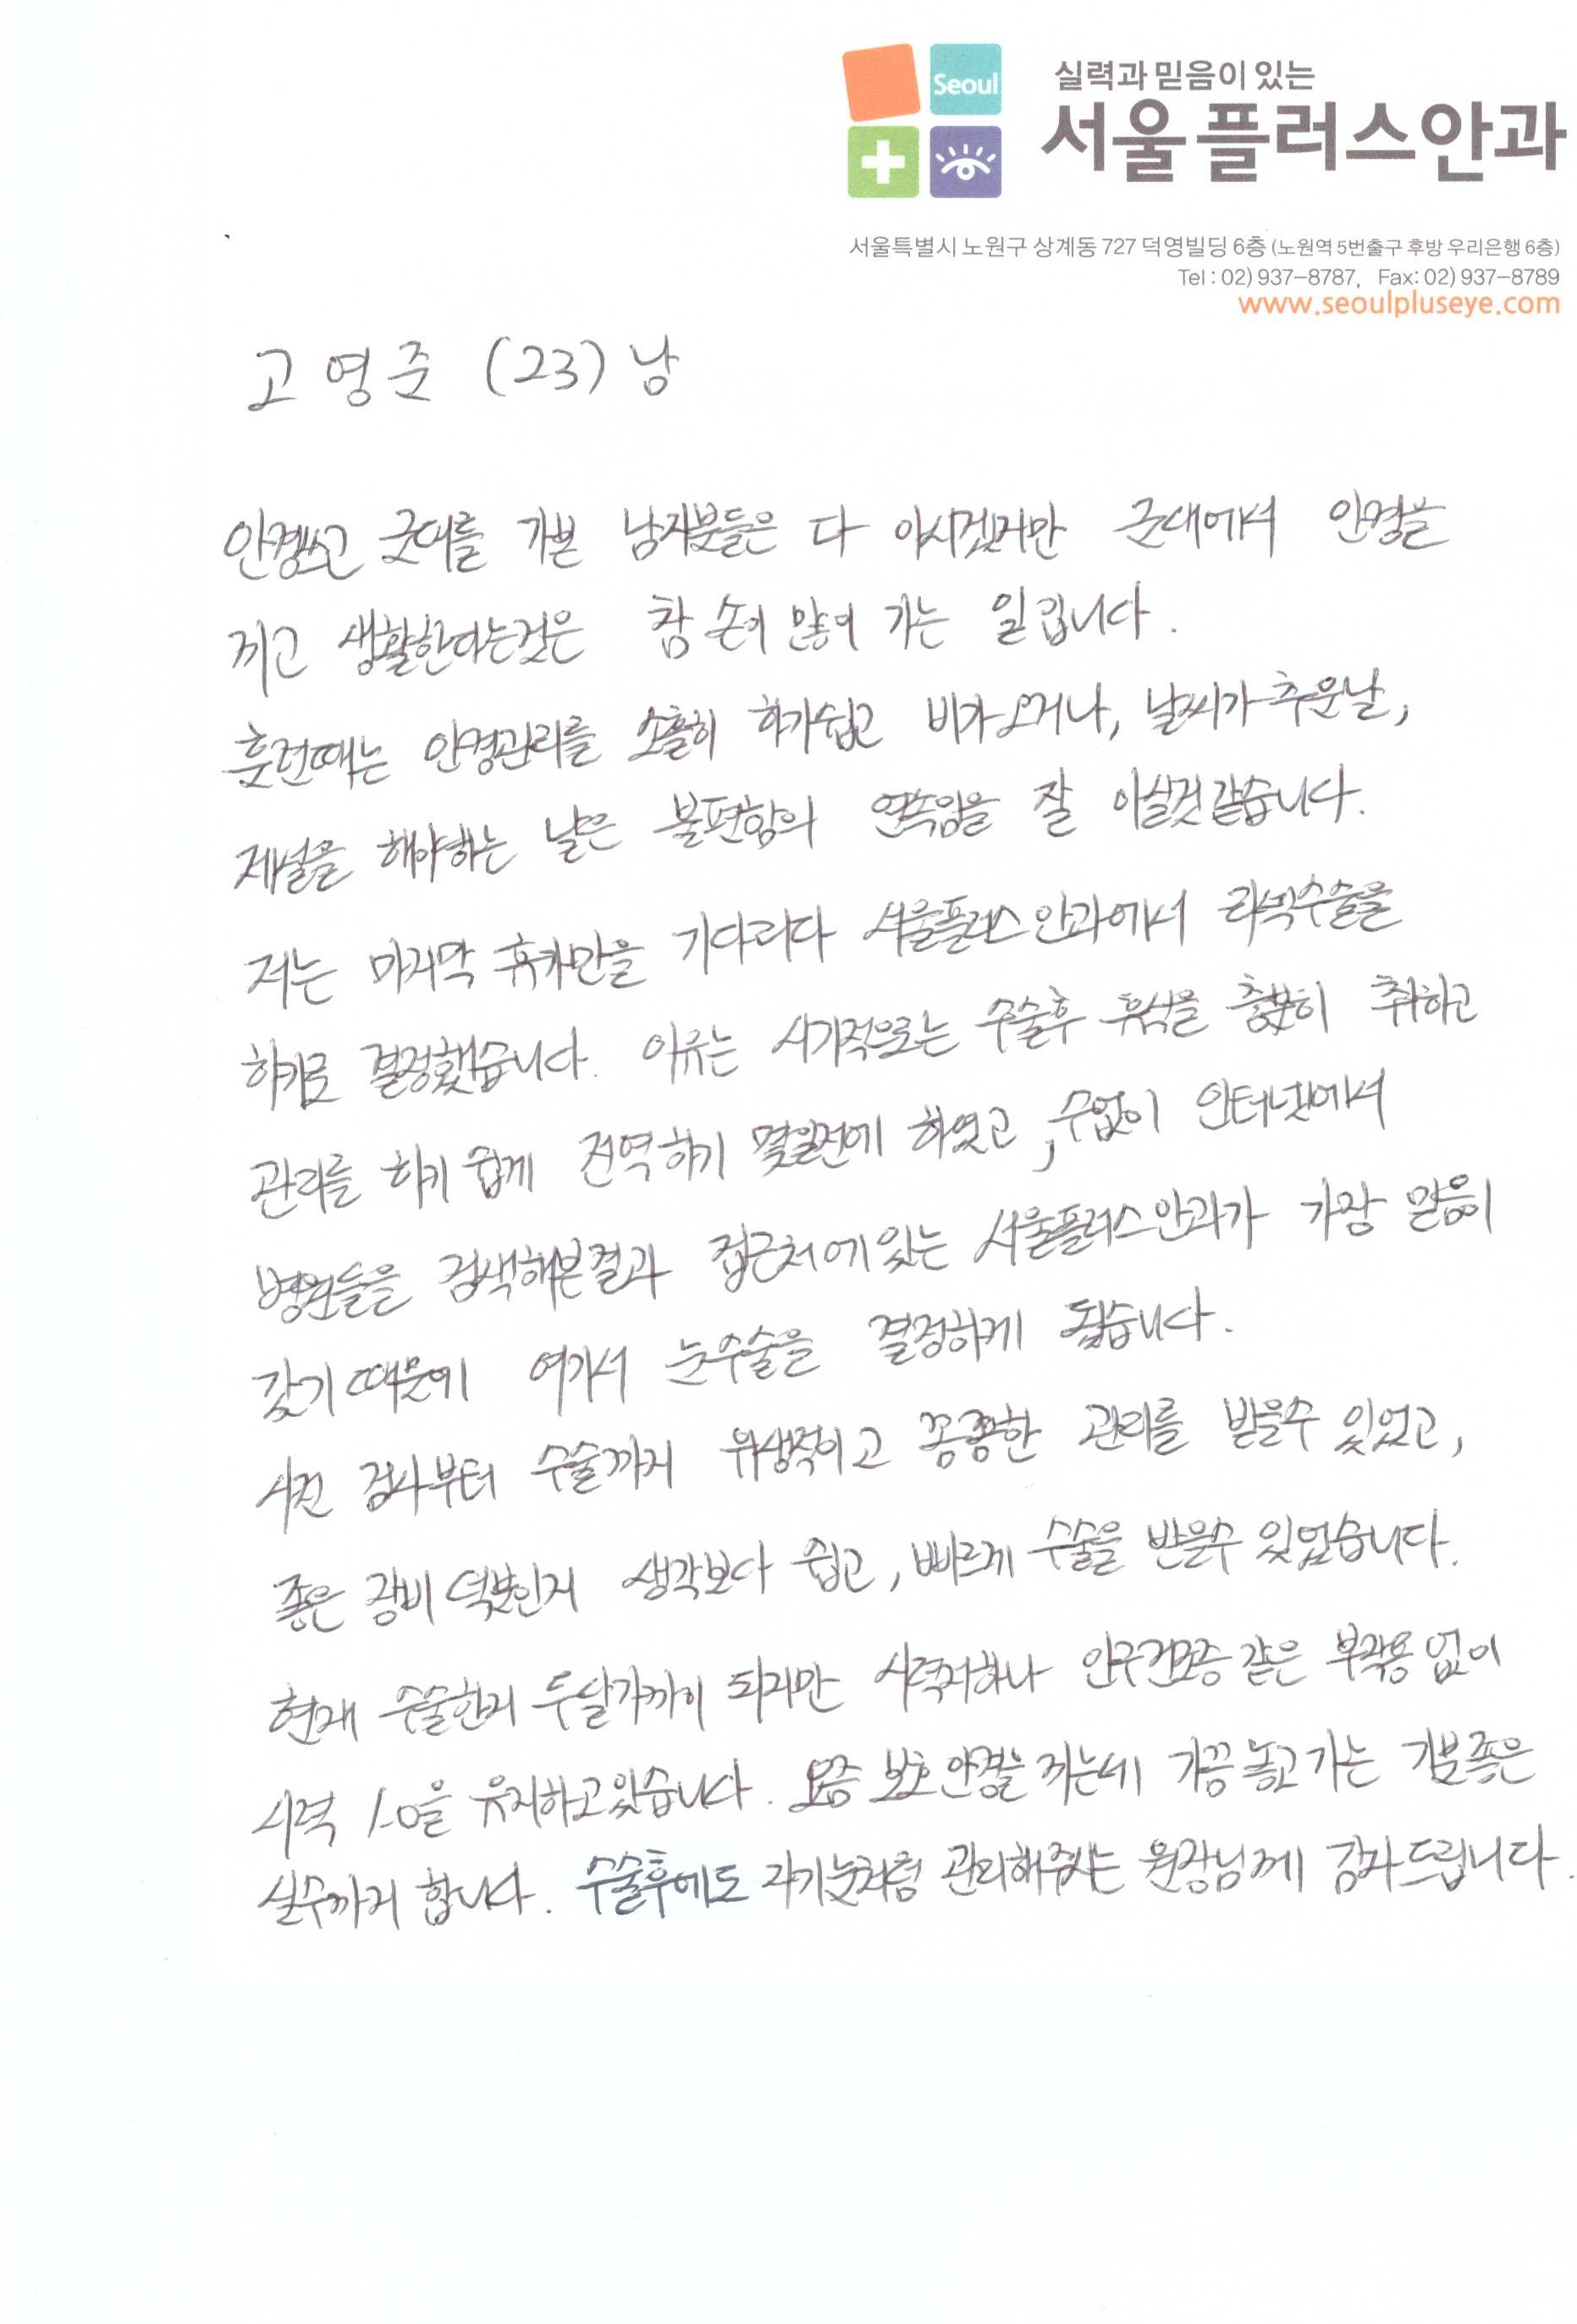 Seoul
실력과 믿음이 있는
서울플러스안과
서울특별시 노원구 상계동 727 덕영빌딩 6층 (노원역 5번출구 후방 우리은행 6층)
Tel : 02) 937-8787, Fax: 02) 937-8789
www.seoulpluseye.com
고영준 (23) 남
안경쓰고 군대를 가본 남자분들은 다 아시겠지만 군대에서 안경을
끼고 생활한다는것은 참 손이 많이 가는 일입니다.
훈련때는 안경관리를 소홀히 하기쉽고 비가오거나, 날씨가 추운날,
제설을 해야하는 날은 불편함의 연속임을 잘 아실것같습니다.
저는 마지막 휴가만을 기다리다 서울플러스안과에서 라섹수술을
하기로 결정했습니다. 이유는 시기적으로는 수술후 휴식을 충분히 취하고
관리를 하기 쉽게 전역하기 몇일전에 하였고, 수없이 인터넷에서
병원들을 검색해본결과 집근처에있는 서울플러스안과가 가장 믿음이
갔기때문에 여기서 눈수술을 결정하게 됬습니다.
사전 검사부터 수술까지 위생적이고 꼼꼼한 관리를 받을수 있었고,
좋은 장비 덕분인지 생각보다 쉽고, 빠르게 수술을 받을수 있었습니다.
현재 수술한지 두달가까이 되지만 시력저하나 안구건조증같은 부작용 없이
시력 1.0을 유지하고있습니다. 요즘 보호안경을 끼는데 가끔 놓고가는 기분좋은
실수까지 합니다. 수술후에도 자기눈처럼 관리해주시는 원장님께 감사드립니다.